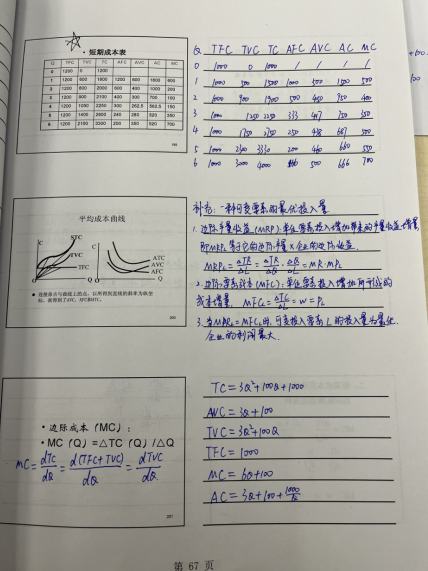 · 短期成本表
Q TFC TVC TC AFC AVC AC MC
0 1200 0 1200
1 1200 600 1800 1200 600 1800 600
2 1200 800 2000 600 400 1000 200
3 1200 900 2100 400 300 700 100
4 1200 1050 2250 300 262.5 562.5 150
5 1200 1400 2600 240 280 520 350
6 1200 2100 3300 200 350 550 700
199
Q TFC TVC TC AFC AVC AC MC
0 1000 0 1000 / / / /
1 1000 500 1500 1000 500 1500 500
2 1000 900 1900 500 450 950 400
3 1000 1250 2250 333 417 750 350
4 1000 1750 2750 250 438 687 500
5 1000 2300 3330 200 460 660 550
6 1000 3000 4000 166 500 666 700
平均成本曲线
C STC
TVC
TFC
C
ATC
AVC
AFC
200
补充:一种可变要素的最优投入量
1. 边际产量收益(MRP):单位要素投入增加带来的产量收益增量,
即MRPL等于它的边际产量×企业的边际收益.
MRPL = △TR/△L = △TR/△Q · △Q/△L = MR·MPL
2. 边际要素成本(MFC):单位要素投入增加所引起的
成本增量. MFCL = △TC/△L = w = PL
3. 当MRPL=MFCL时,可变投入要素L的投入量为最优.
企业的利润最大.
· 边际成本(MC):
· MC(Q)=△TC(Q)/△Q
MC = dTC/dQ = d(TFC+TVC)/dQ = dTVC/dQ
201
TC=3Q²+100Q+1000
AVC=3Q+100
TVC=3Q²+100Q
TFC=1000
MC=6Q+100
AC=3Q+100+1000/Q
第 67 页